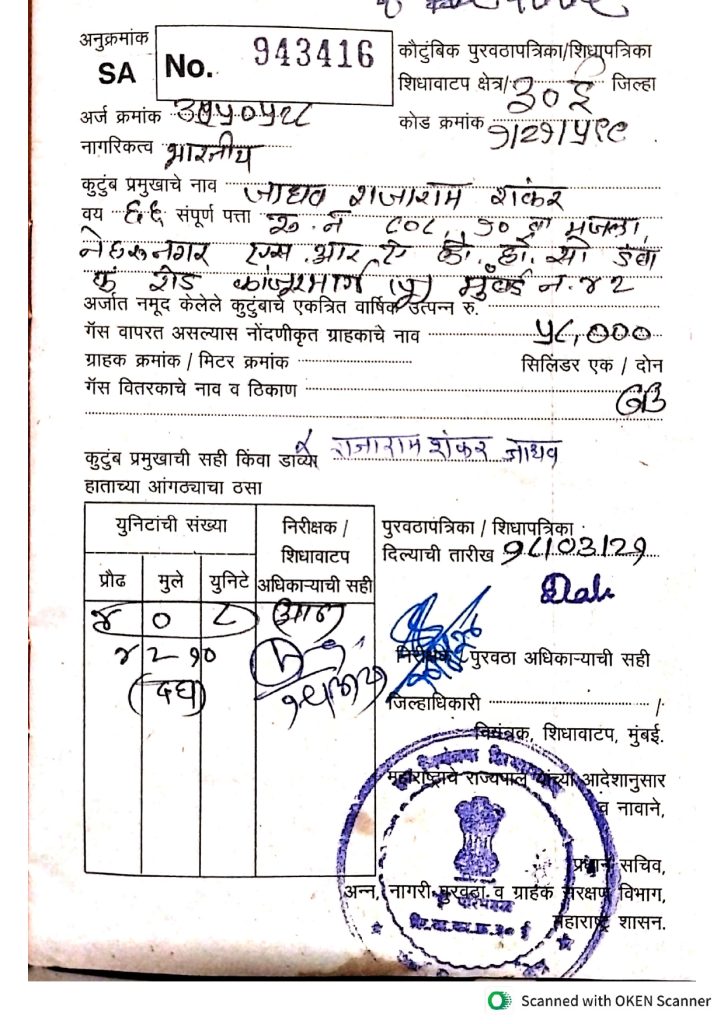 अनुक्रमांक
SA No. 943416
कौटुंबिक पुरवठापत्रिका/शिधापत्रिका
शिधावाटप क्षेत्र/ ३०ई जिल्हा
अर्ज क्रमांक
कोड क्रमांक १/२१/५९९
नागरिकत्व भारतीय
कुटुंब प्रमुखाचे नाव जाधव राजाराम शंकर
वय ६६ संपूर्ण पत्ता रु.नं ८०८, १० वा मजला,
नेहरुनगर एस.आर.ए को.हौ.सो
रोड कांजूरमार्ग (पू) मुंबई नं.४२
अर्जात नमूद केलेले कुटुंबाचे एकत्रित वार्षिक उत्पन्न रु.
गॅस वापरत असल्यास नोंदणीकृत ग्राहकाचे नाव ५८,०००
ग्राहक क्रमांक / मिटर क्रमांक सिलिंडर एक / दोन
गॅस वितरकाचे नाव व ठिकाण GB
कुटुंब प्रमुखाची सही किंवा डाव्या राजाराम शंकर जाधव
हाताच्या आंगठ्याचा ठसा
युनिटांची संख्या
प्रौढ मुले युनिटे
निरीक्षक /
शिधावाटप
अधिकाऱ्याची सही
४ ० ८
४ २ १०
पुरवठापत्रिका / शिधापत्रिका
दिल्याची तारीख १८/०३/२१
निरीक्षक/पुरवठा अधिकाऱ्याची सही
जिल्हाधिकारी /
नियंत्रक, शिधावाटप, मुंबई.
महाराष्ट्राचे राज्यपाल यांच्या आदेशानुसार
व नावाने,
प्रधान सचिव,
अन्न, नागरी पुरवठा व ग्राहक संरक्षण विभाग,
महाराष्ट्र शासन.
Scanned with OKEN Scanner